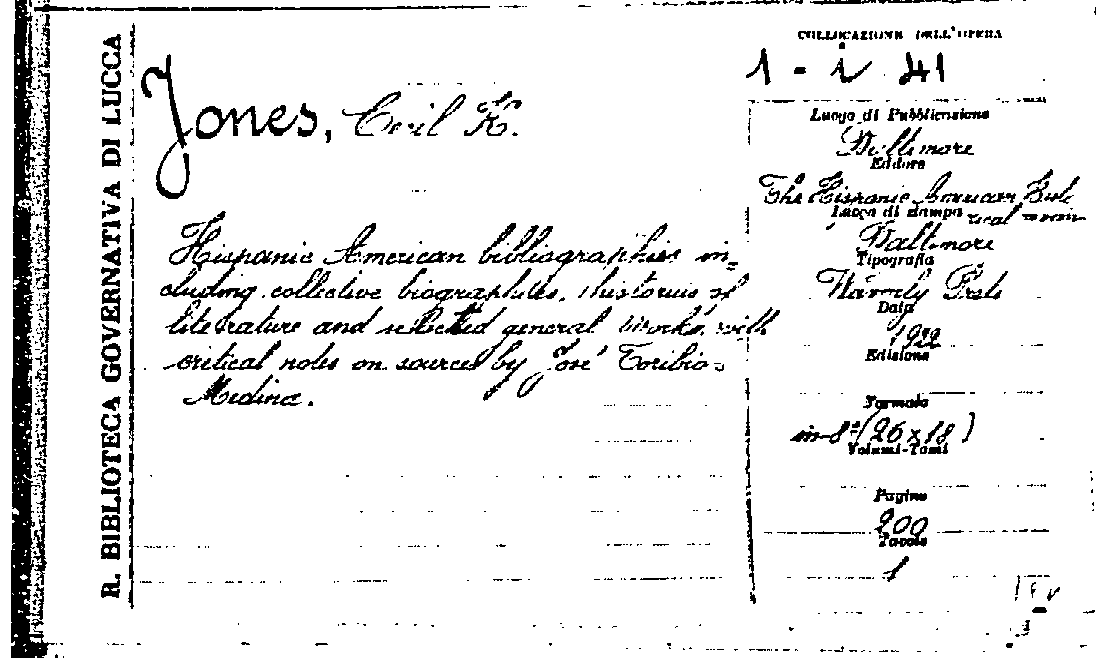 R. BIBLIOTECA GOVERNATIVA DI LUCCA
Jones, Cecil K.
Hispanic American bibliographies in=
cluding collective biographies, histories of
literature and selected general works with
critical notes on sources by José Toribio=
Medina.
COLLOCAZIONE DELL'OPERA
1 - i 41
Luogo di Pubblicazione
Baltimore
Editore
The Hispanic American Histo
rical
Luogo di stampa
Baltimore
Tipografia
Waverly Press
Data
1922
Edizione
Formato
in-8° (26 x 18)
Volumi-Tomi
Pagine
200
Tavole
1